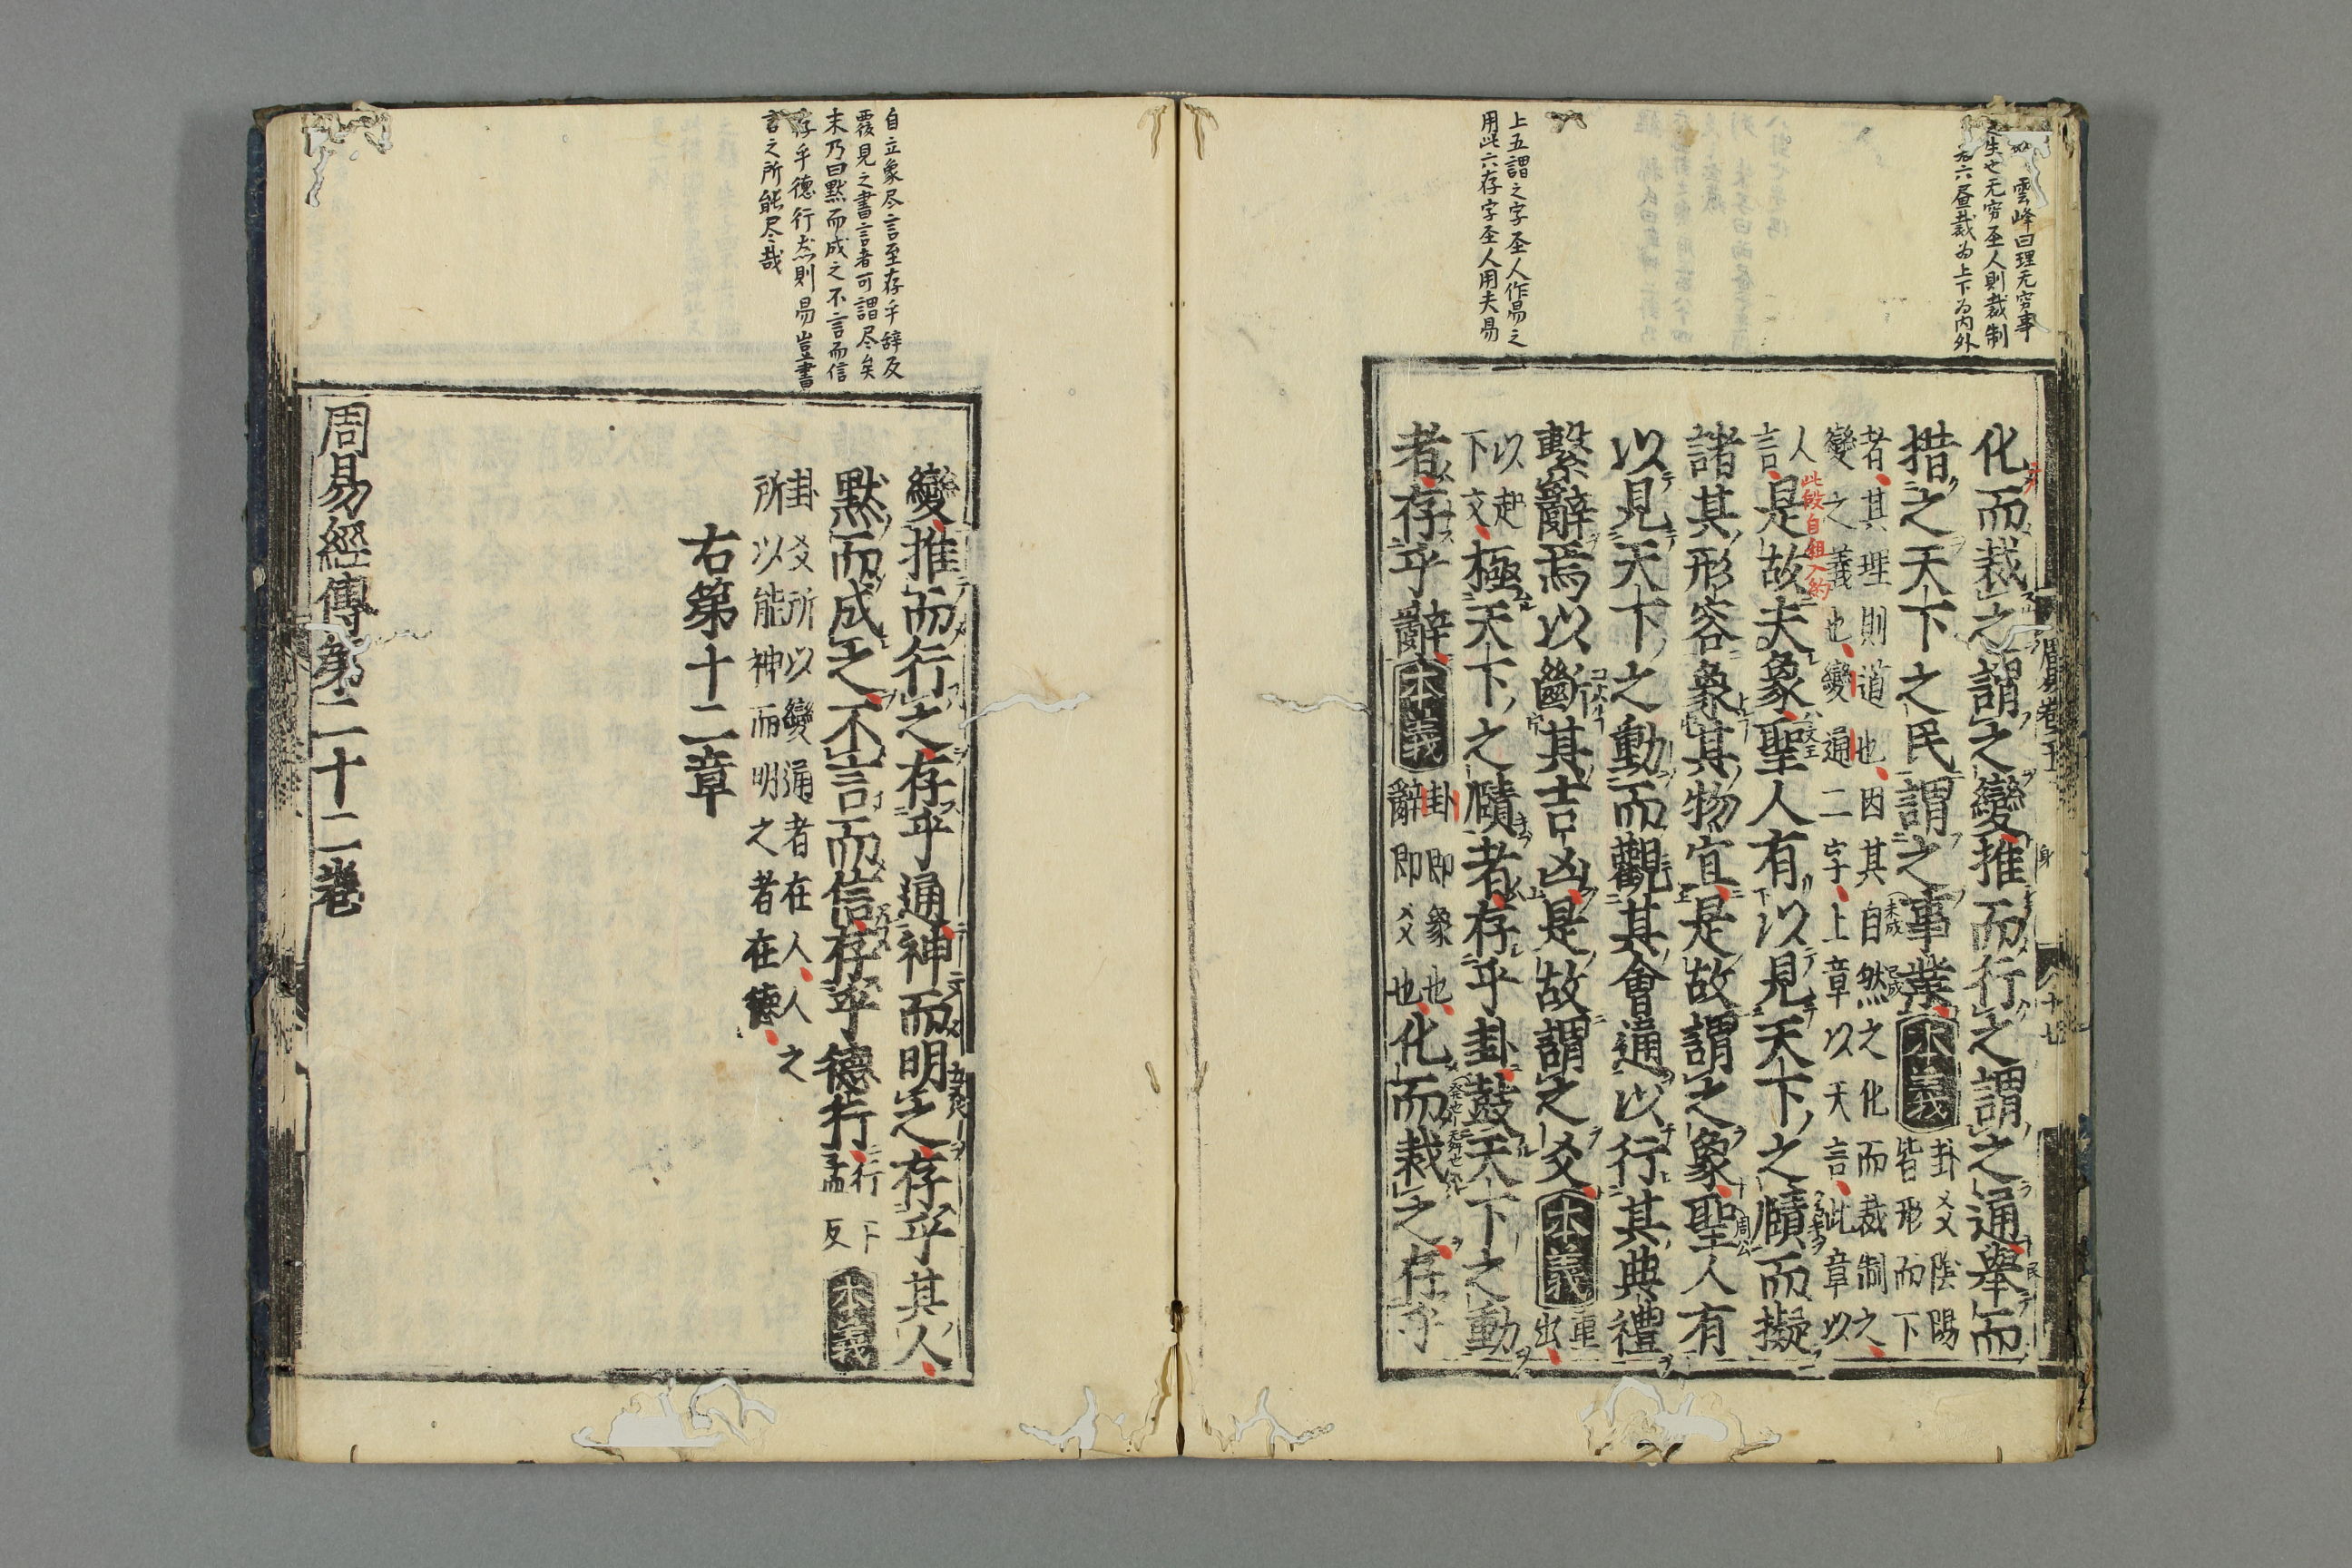 雲峰曰理无窮事
也无窮圣人則裁制
六昼裁為上下為内外
上五謂之字圣人作易之
用此六存字圣人用夫易
周易卷五
十七
化而裁之謂之變推而行之謂之通舉而
措之天下之民謂之事業本義卦爻陰陽
皆形而下
者其理則道也因其自然之化而裁制之
變之義也變通二字上章以天言此章以
人
言是故夫象聖人有以見天下之賾而擬
此段自
諸其形容象其物宜是故謂之象聖人有
以見天下之動而觀其會通以行其典禮
繫辭焉以斷其吉凶是故謂之爻本義重
出
以起
下文極天下之賾者存乎卦鼓天下之動
者存乎辭本義卦即象也
辭即爻也化而裁之存乎
自立象尽言至存乎辞反
覆見之書言者可謂尽矣
末乃曰黙而成之不言而信
存乎德行然則易豈書
言之所能尽哉
變推而行之存乎通神而明之存乎其人
默而成之不言而信存乎德行行下
孟反本義
卦爻所以變通者在人人之
所以能神而明之者在德
右第十二章
周易經傳第二十二卷